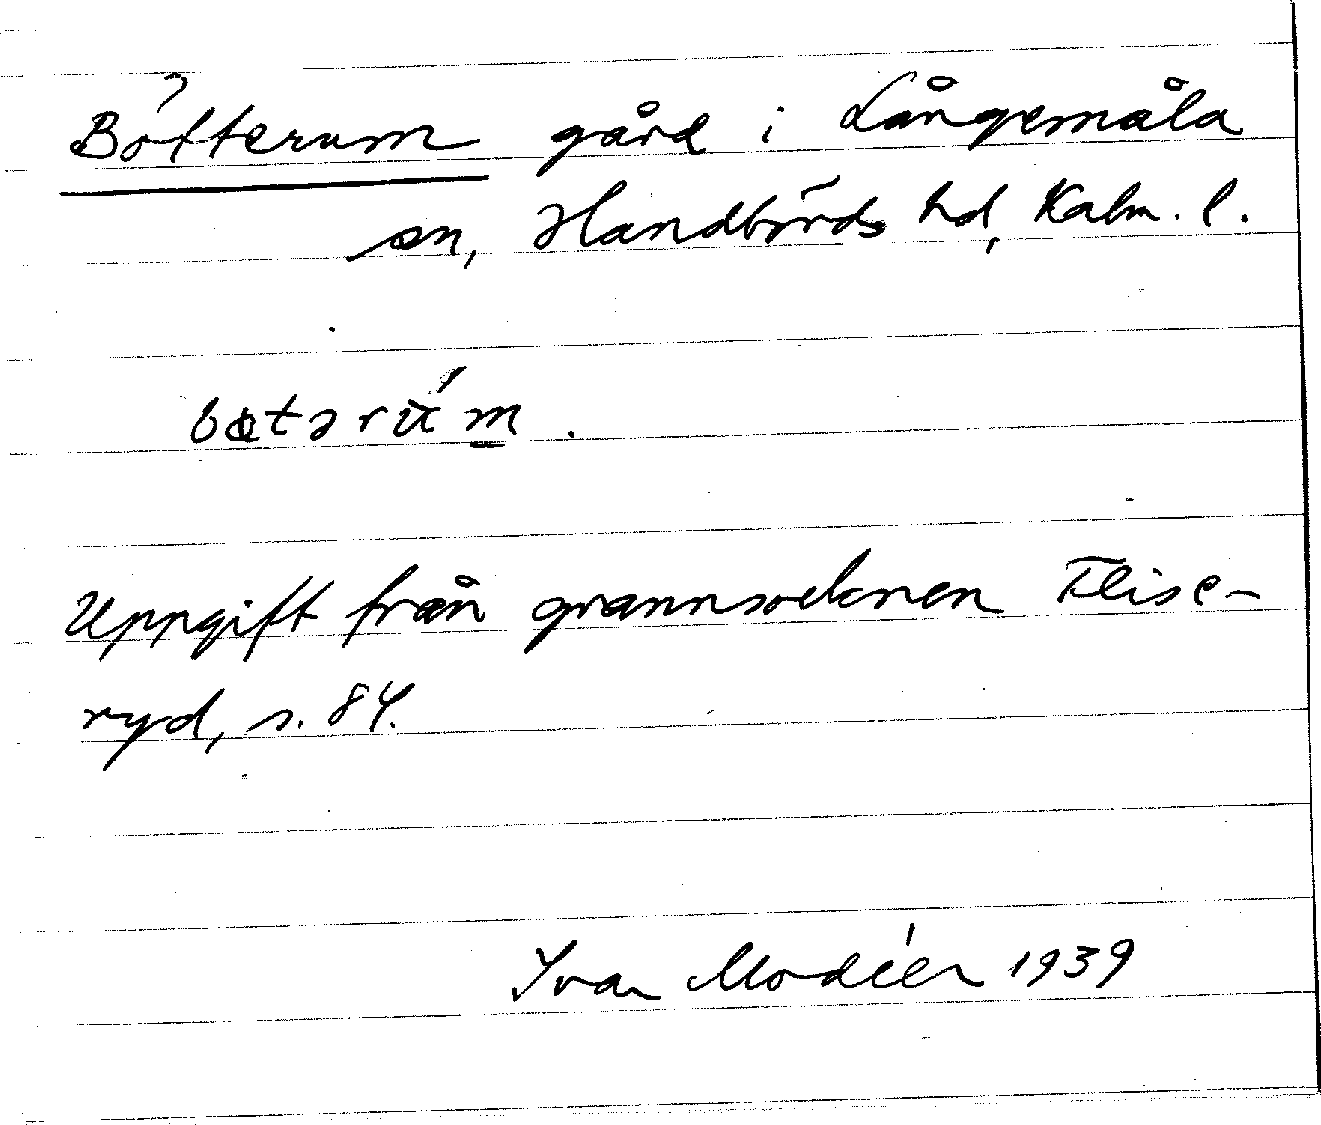 Bötterum gård i Långemåla
sn, Handbörds hd, Kalm. l.
Uppgift från grannsocknen Flise-
ryd, s. 84.
Ivar Modéer 1939